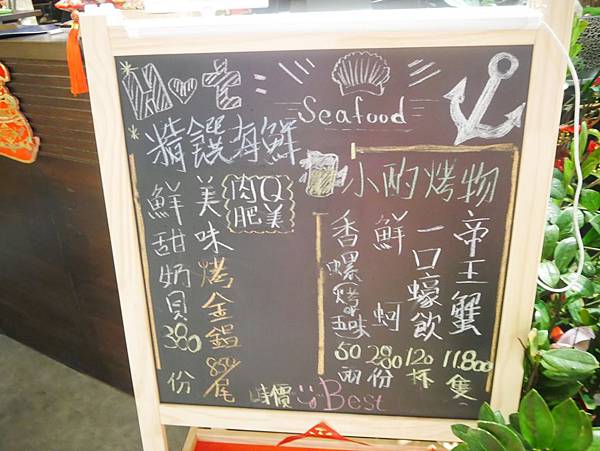 Hot
Seafood
精饌海鮮
小酌烤物
肉Q
肥美
帝王蟹 11.800隻
一口蠔飲 120杯
鮮蚵 280份
香螺 50兩
美味烤金鯧 880尾
鮮甜奶貝 380份
時價
Best